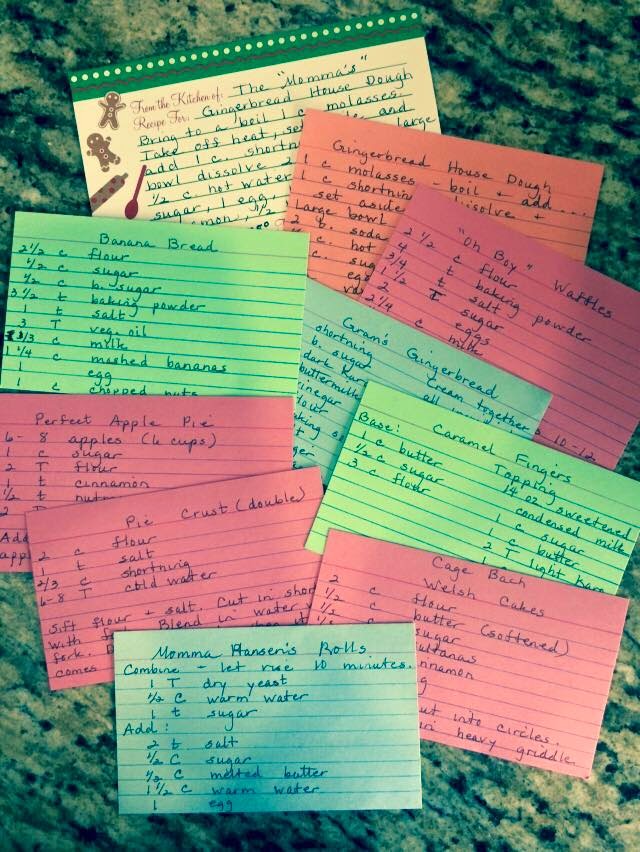 The "Momma's"
From the Kitchen of: Gingerbread House Dough
Recipe For:
Bring to a boil 1 c. molasses.
Take off heat, and
add 1 c. large
bowl dissolve 2
1/2 c hot water
sugar, 1 egg,
1/2
Gingerbread House Dough
1 c molasses - boil + add....
1 c dissolve +
set aside
large bowl
2 t. soda
c. hot
c.
egg
"Oh Boy" Waffles
2 1/2 c flour
4 t baking powder
3/4 t salt
1 1/2 T sugar
2 eggs
2 1/4 c milk
10-12
Banana Bread
2 1/2 c flour
1/2 c sugar
1/2 c b. sugar
3 1/2 t baking powder
1 t salt
3 T veg. oil
1/3 c milk
1 1/4 c mashed bananas
1 egg
1 c chopped nuts
Gram's Gingerbread
shortning Cream together
b. sugar
dark Karo
buttermilk
Caramel Fingers
Base: Topping
1 c butter 14 oz sweetened
1/2 c sugar condensed milk
3 c flour 1 c sugar
1 c butter
2 T light Karo
Perfect Apple Pie
6-8 apples (6 cups)
1 c sugar
2 T flour
1 t cinnamon
1/2 t
2
Add
Pie Crust (double)
2 c flour
1 t salt
2/3 c shortning
6-8 T cold water
Sift flour + salt. Cut in
with Blend in water
fork.
comes
Cage Bach
Welsh Cakes
2 c flour
1/2 c butter (softened)
1/2 sugar
into circles.
heavy griddle
Momma Hansen's Rolls
Combine - let rise 10 minutes.
1 T dry yeast
1/2 C warm water
1 t sugar
Add:
2 t salt
1/2 C sugar
1/2 C melted butter
1 1/2 C warm water
1 egg